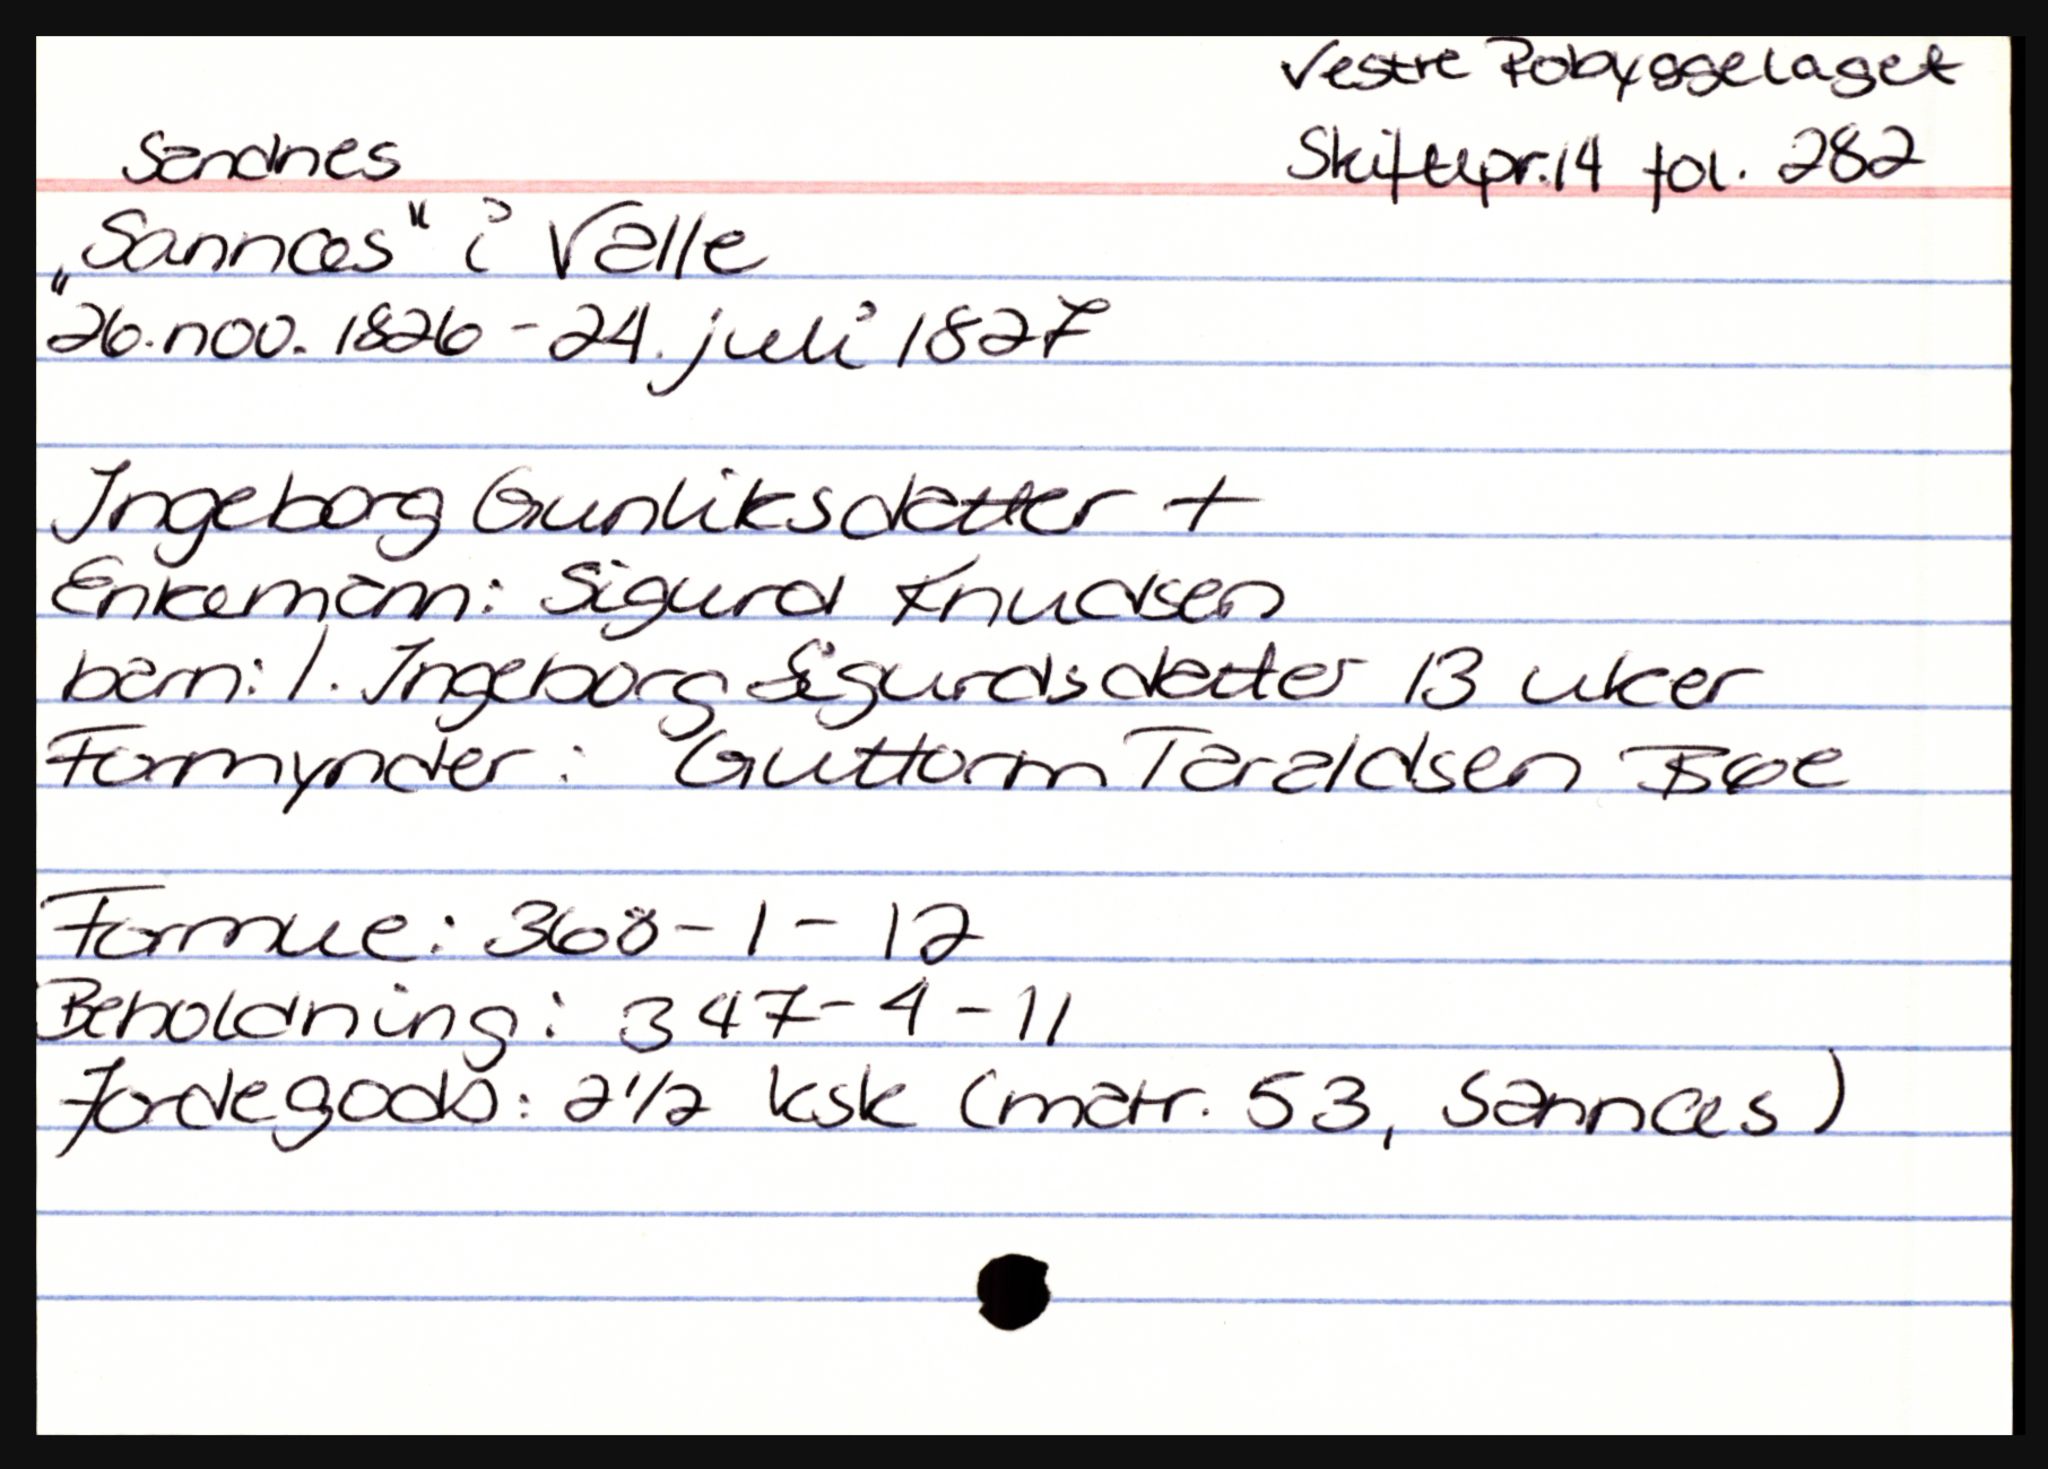 Vestre Robyggelaget
Sandnes Skiftepr. 14 fol. 282
„Sannæs" i Valle
26. nov. 1826 - 24. juli 1827
Ingeborg Gunliksdatter +
Enkemann: Sigurd Knudsen
barn: 1. Ingeborg Sigurdsdatter 13 uker
Formynder: Guttorm Taraldsen Bøe
Formue: 368 - 1 - 12
Beholdning: 347 - 4 - 11
Jordegods: 2 1/2 ksk (matr. 53, Sannæs)